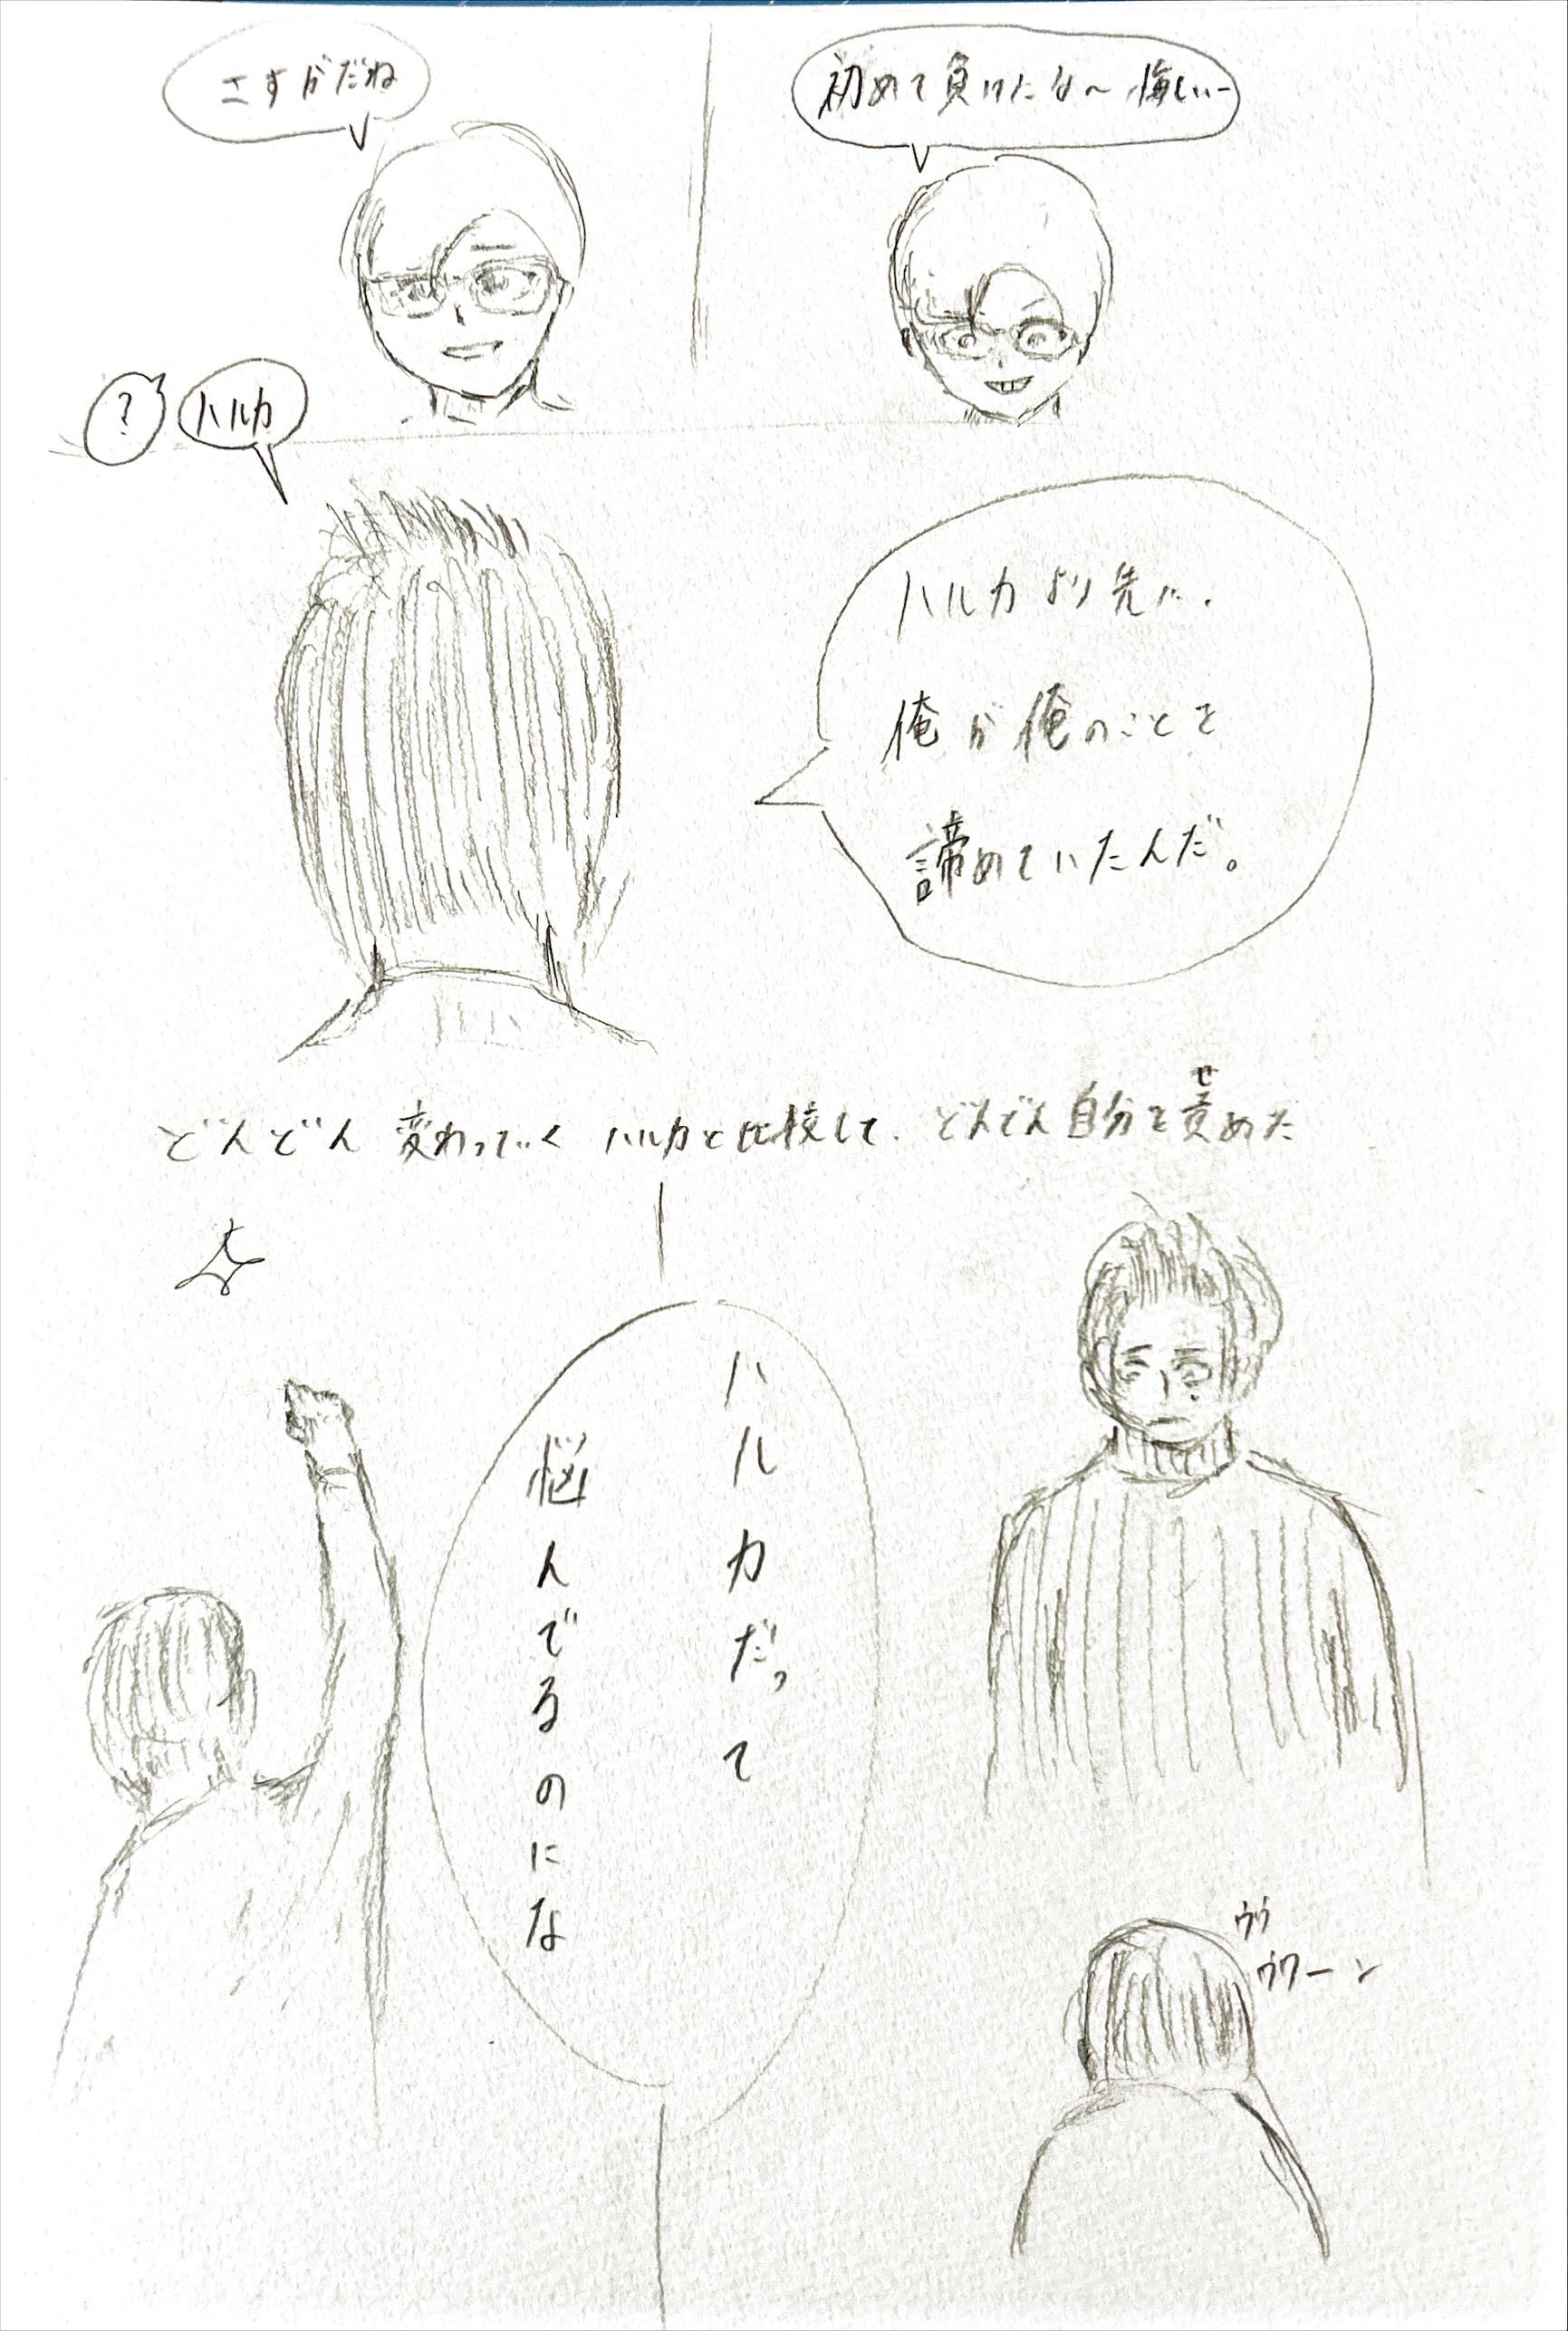 初めて負けたな〜悔しいー
さすがだね
ハルカ
?
ハルカより先に、
俺が俺のことを
諦めていたんだ。
どんどん変わっていくハルカと比較して、どんどん自分を責めた
せ
ハルカだって
悩んでるのにな
ヴヴ
ヴワーン